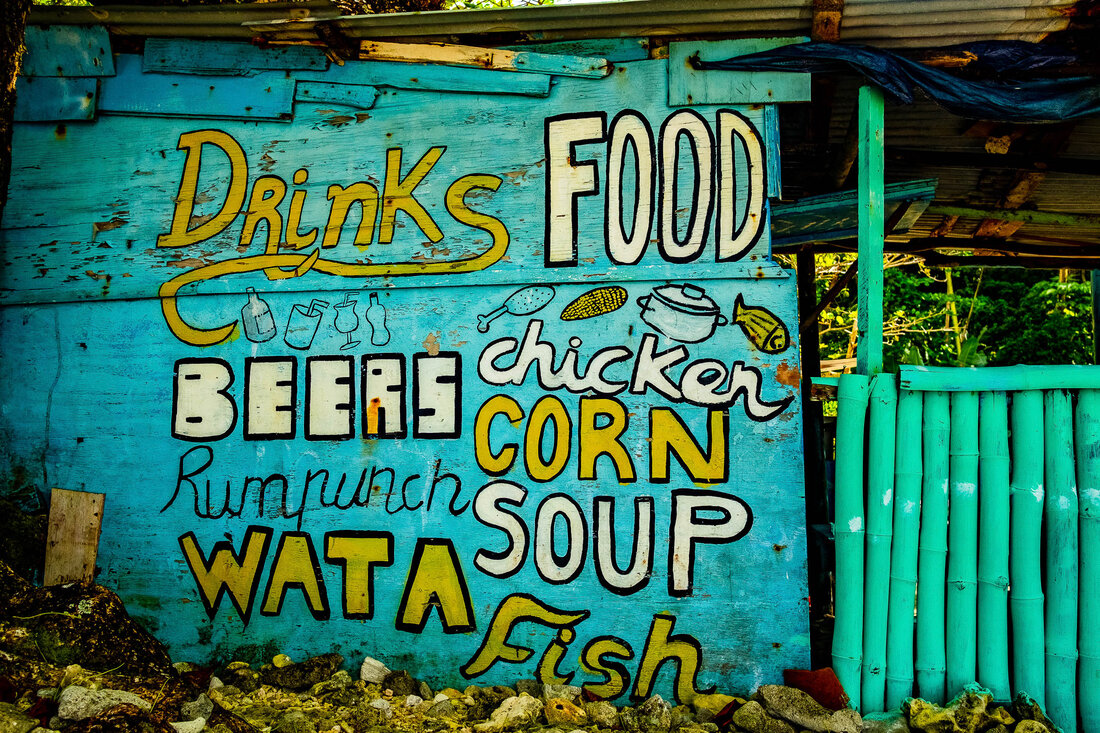 DRinKS
BEERS
Rumpunch
WATA
FOOD
chicken
CORN
SOUP
Fish